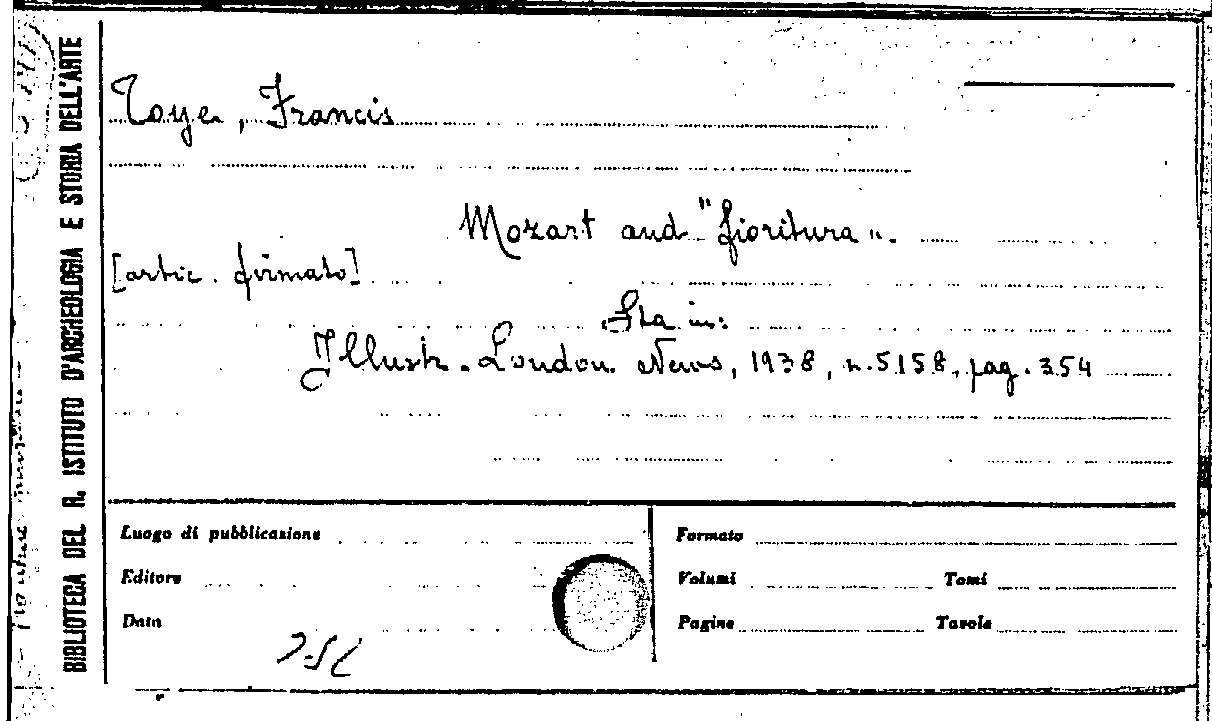 BIBLIOTECA DEL R. ISTITUTO D'ARCHEOLOGIA E STORIA DELL'ARTE
Toye, Francis
Mozart and "fioritura".
[artic. firmato]
Sta in:
Illustr. London News, 1938, n. 5158, pag. 354
Luogo di pubblicazione
Editore
Data
Formato
Volumi Tomi
Pagine Tavole